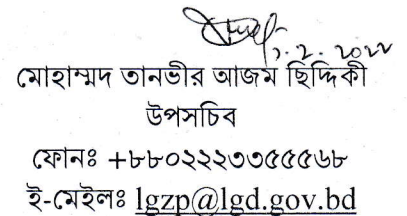 ১.২.২০২২
মোহাম্মদ তানভীর আজম ছিদ্দিকী
উপসচিব
ফোনঃ +৮৮০২২২৩৩৫৫৫৬৮
ই-মেইলঃ lgzp@lgd.gov.bd